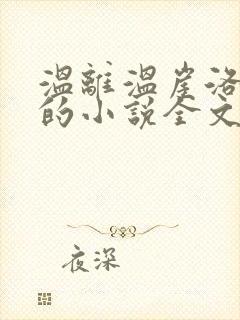 溫離溫崖洛
的小說全文
夜深